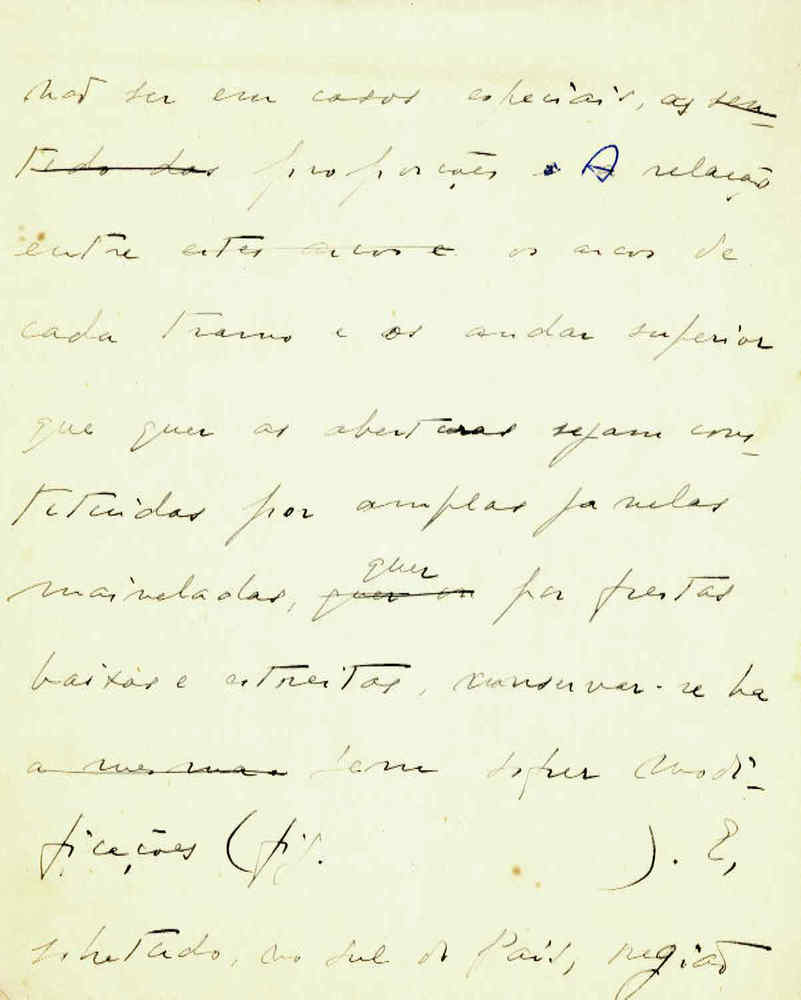 não ser em casos especiais, as sen-
tido das proporções e A relação
entre estes arcos e os arcos de
cada tramo e os andar superior
que quer as aberturas sejam cons-
tituidas por amplas janelas
quer
maineladas, quer ou por frestas
baixas e estreitas, conservar-se ha
a mesma sem sofrer modi-
ficações (fig. ). E,
sobretudo, no sul do País, região